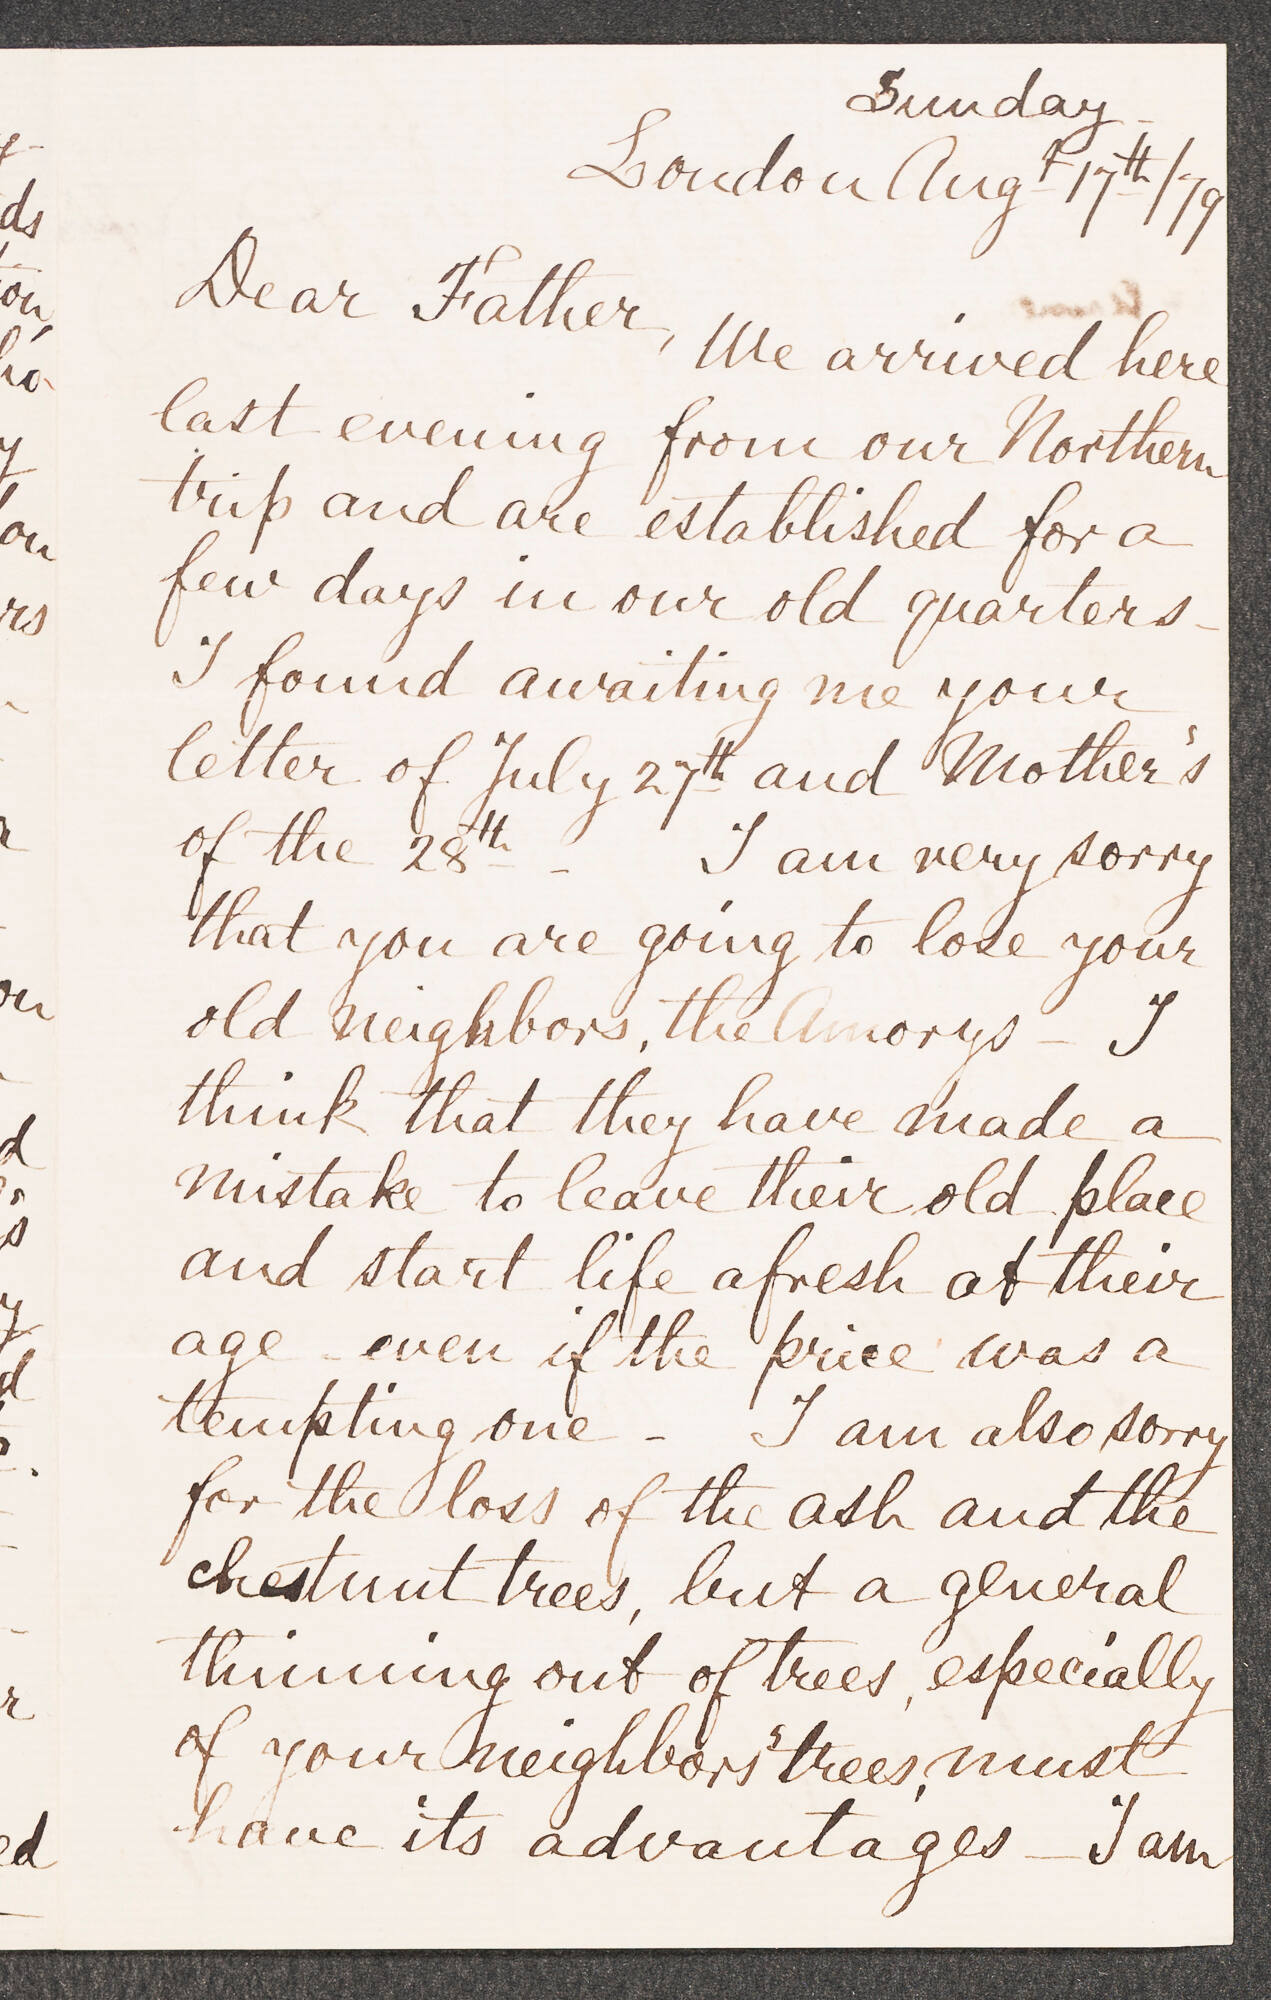 Sunday -
London Augt 17th/79
Dear Father,
We arrived here
last evening from our Northern
trip and are established for a
few days in our old quarters -
I found awaiting me your
letter of July 27th and Mother's
of the 28th - I am very sorry
that you are going to lose your
old neighbors, the Amorys - I
think that they have made a
mistake to leave their old place
and start life afresh at their
age - even if the price was a
tempting one - I am also sorry
for the loss of the ash and the
chestnut trees, but a general
thinning out of trees, especially
of your neighbors' trees, must
have its advantages - I am